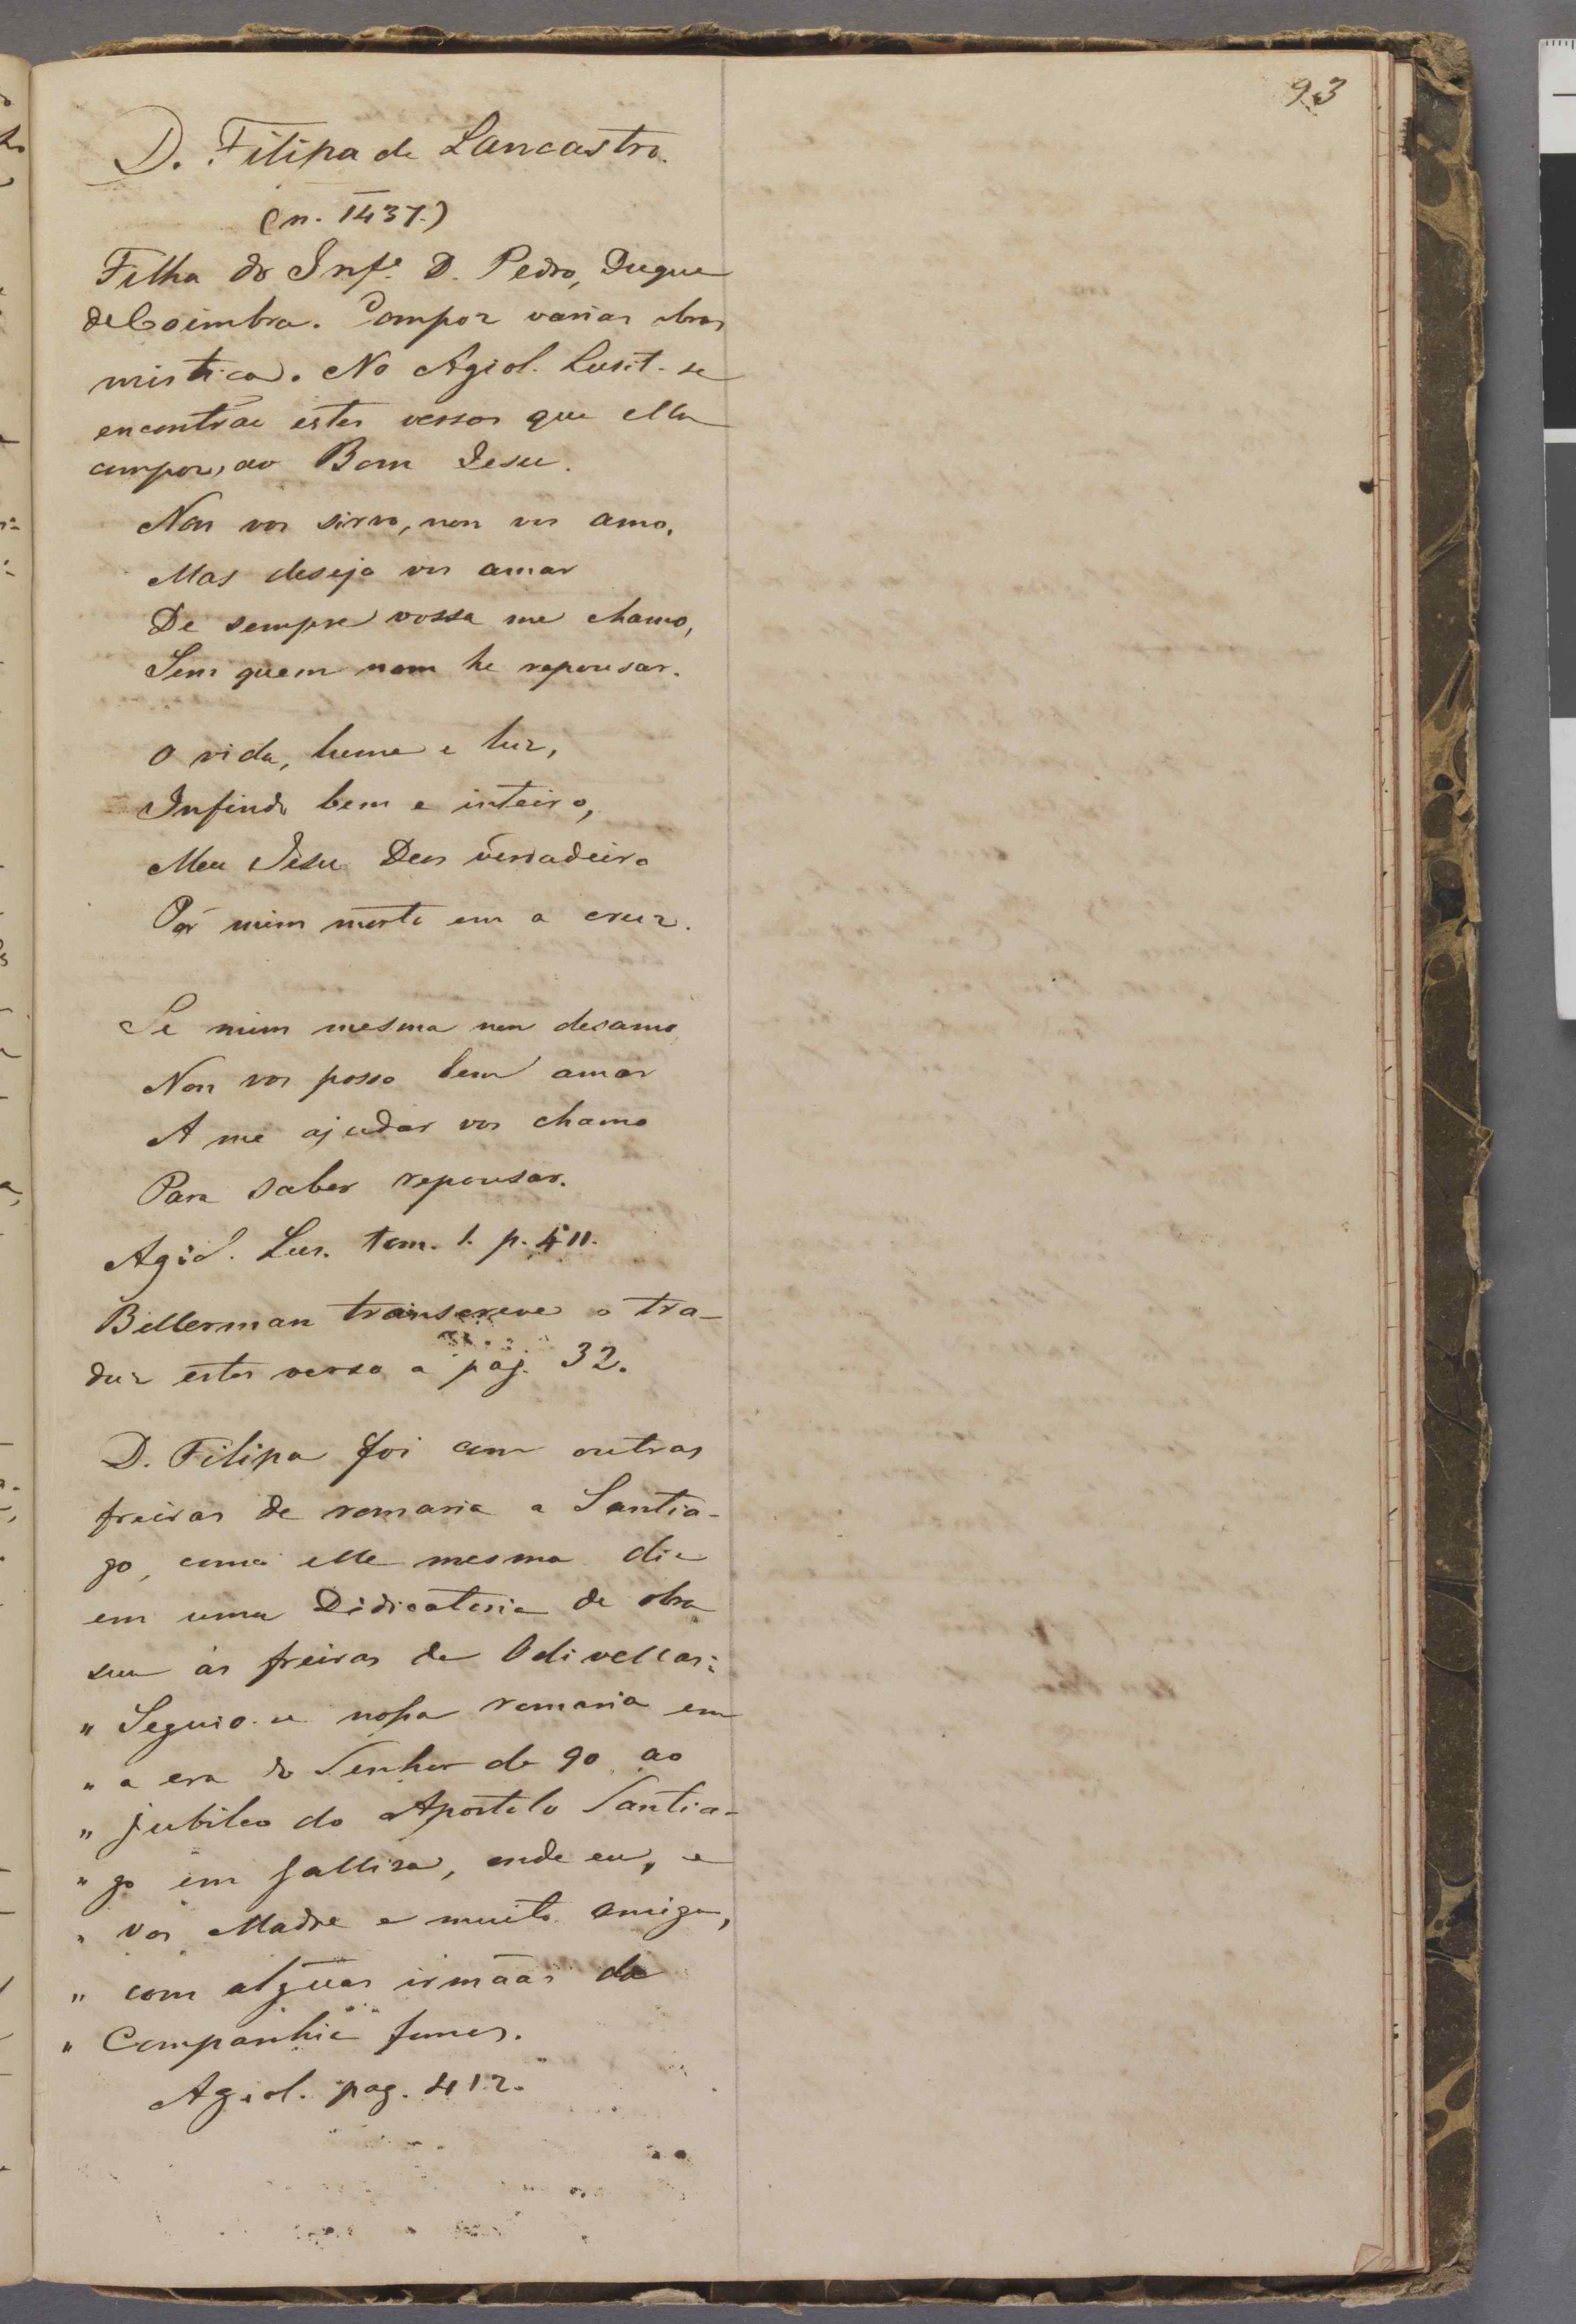 93
D. Filipa de Lancastro.
(n. 1437.)
Filha do Inf.e D. Pedro, Duque
de Coimbra. Compoz varias obras
misticas. No Agiol. Lusit. se
encontrão estes versos que ella
compoz, ao Bom Jesu.
Non vos sirvo, non vos amo,
Mas desejo vos amar
De sempre vossa me chamo,
Sem quem nom he repousar.
O vida, lume e luz,
Infindo bem e inteiro,
Meu Jesu Deos verdadeiro
Por mim morto em a cruz.
Se mim mesma non desamo,
Non vos posso bem amar
A me ajudar vos chamo
Para saber repousar.
Agiol. Lus. tom. 1. p. 411.
Bellerman transcreve e tra-
duz estes versos a pag. 32.
D. Filipa foi com outras
freiras de romaria a Santia-
go, como ella mesma diz
em uma Didicatoria de obra
sua ás freiras de Odivellas:
" Seguio-se nossa romaria em
" a era do Senhor de 90 ao
" jubileo do Apostolo Santia-
" go em Galliza, onde eu, e
" vos Madre e muito amiga,
" com algũas irmãas da
" Companhia fomos.
Agiol. pag. 412.